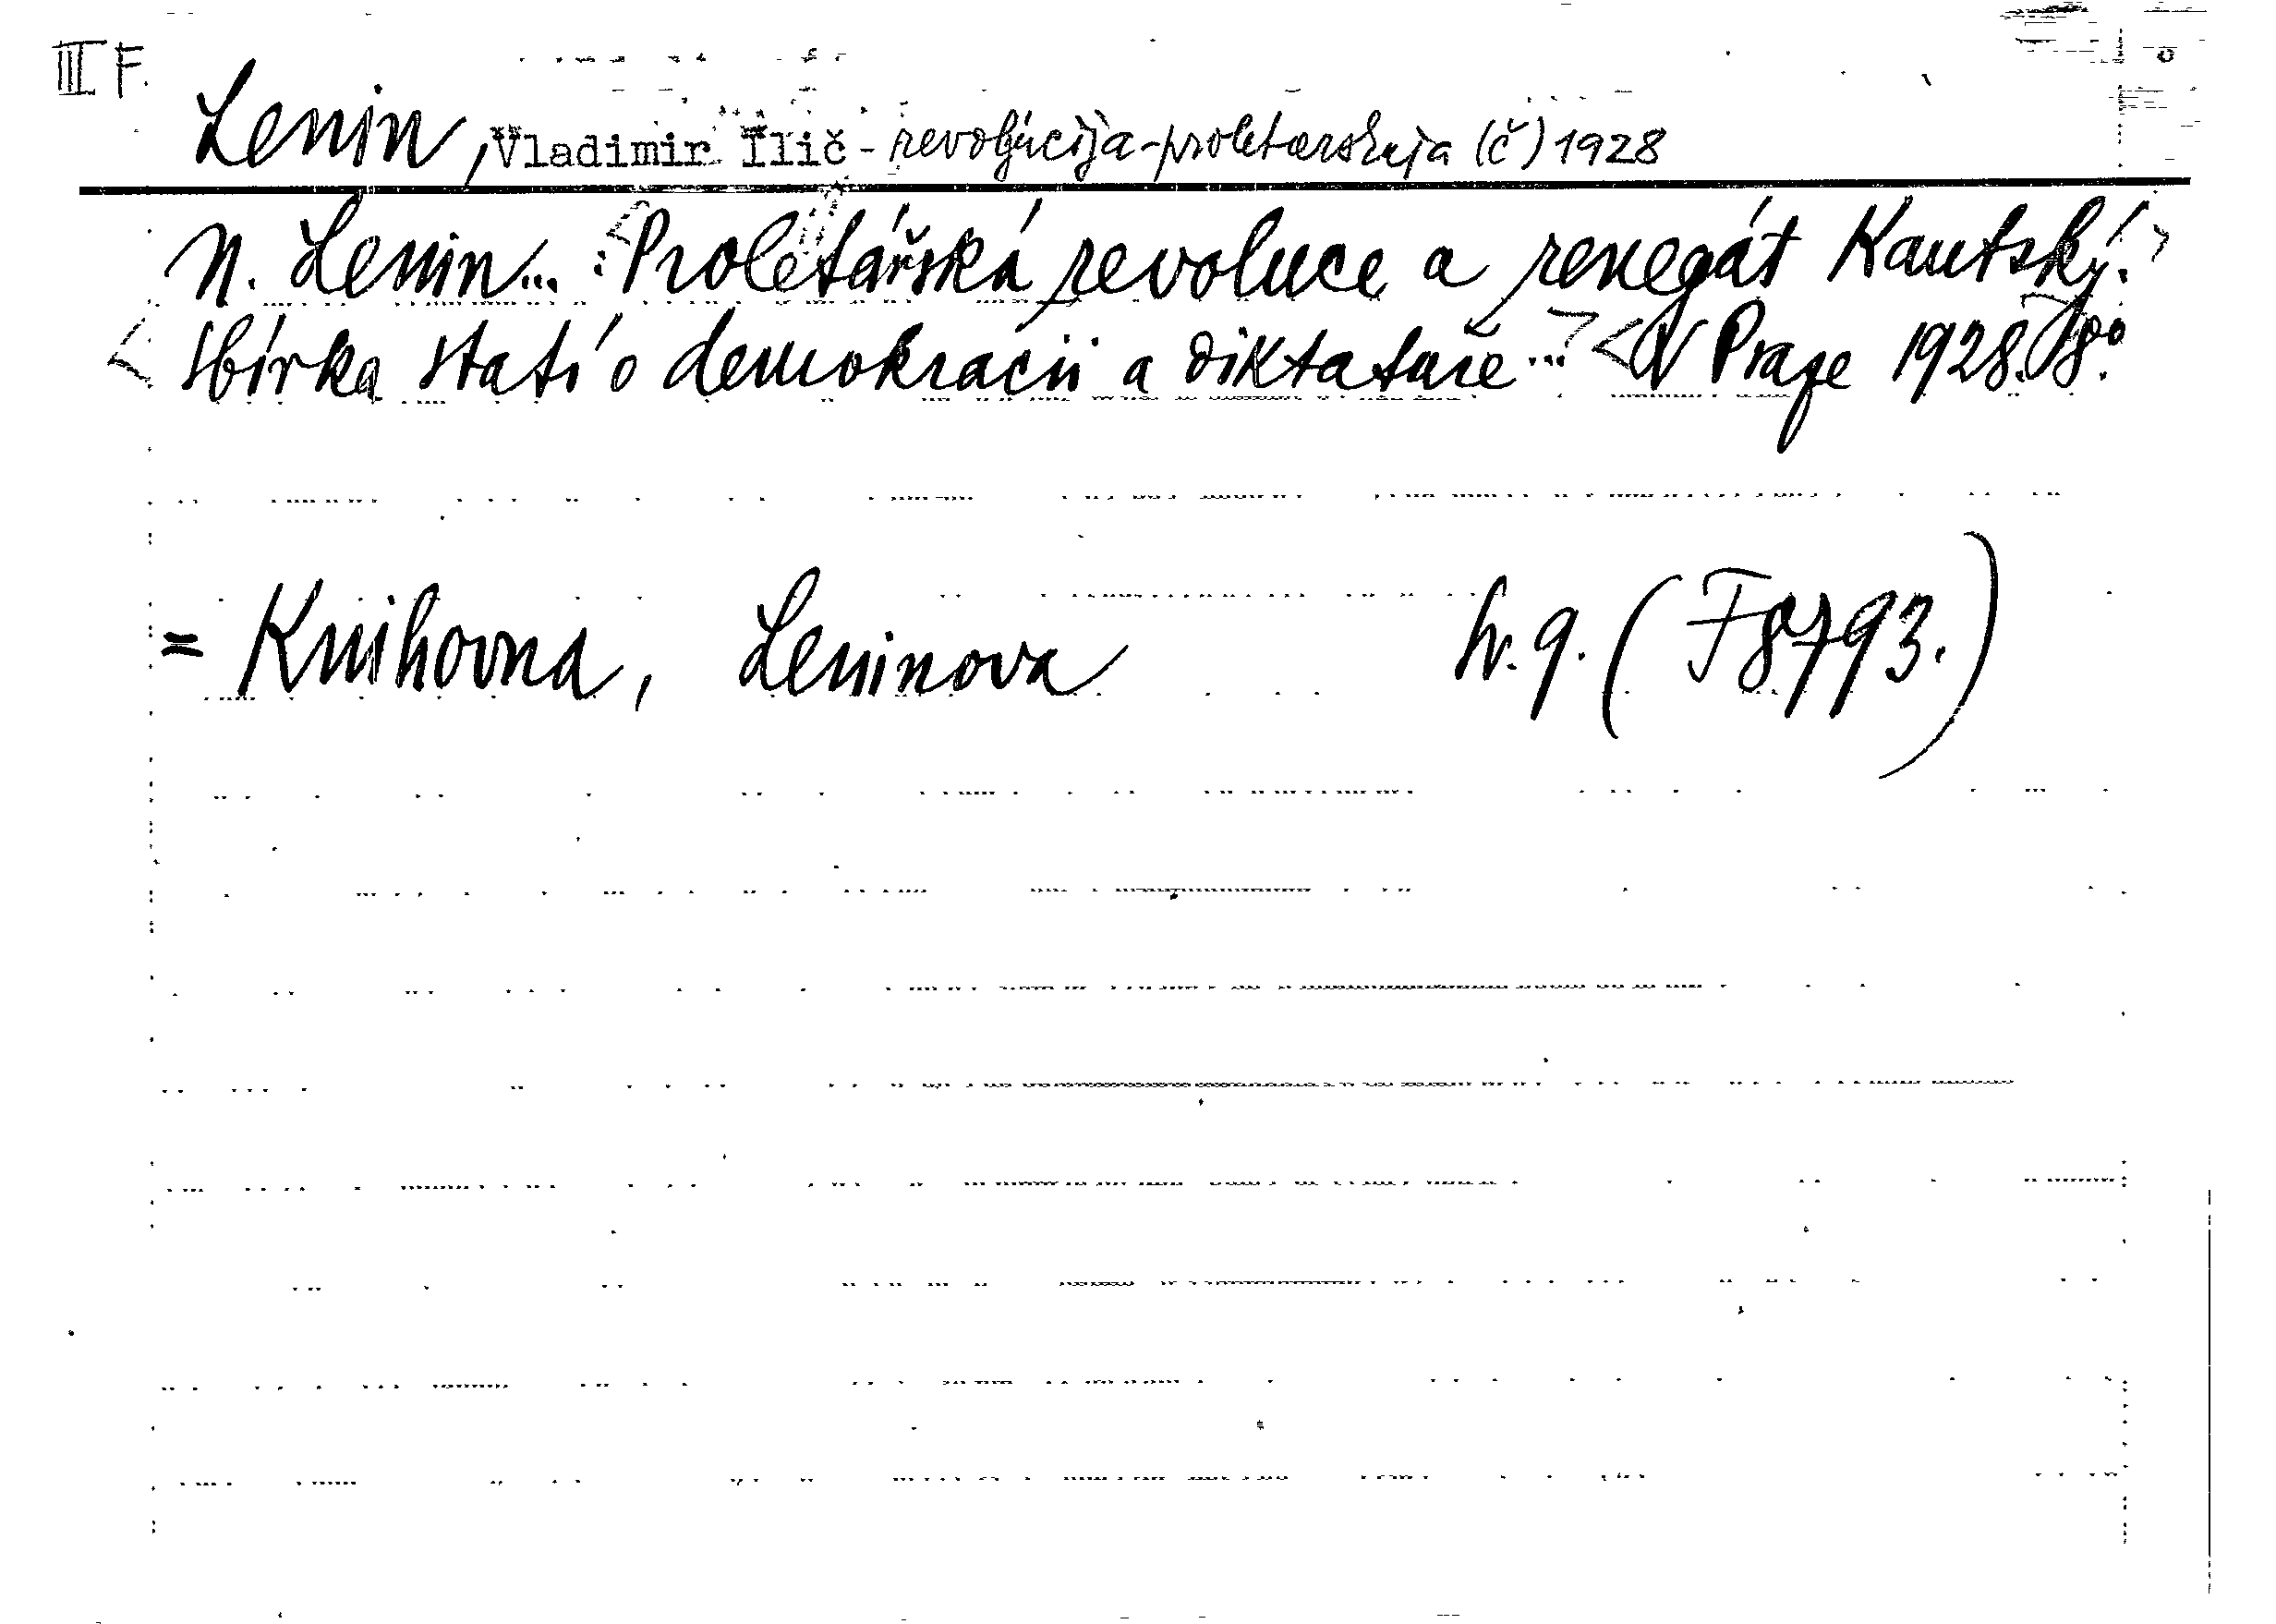 III F.
Lenin, Vladimir Ilič - revoljucija-proletarskaja (č) 1928
N. Lenin... : <Proletářská revoluce a renegát Kautský.>
<Sbírka statí o demokracii a diktatuře...> <V Praze 1928.> 8°.
= Knihovna, Leninova sv. 9. (F8793.)